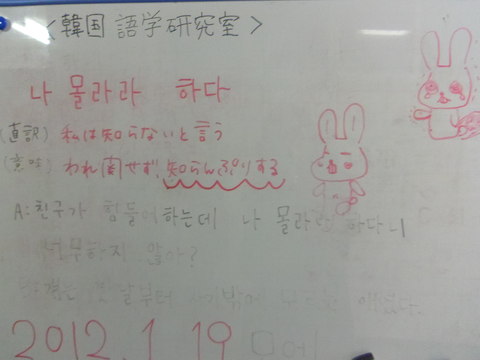 <韓国語学研究室>
나 몰라라 하다
(直訳) 私は知らないと言う
(意味) われ関せず、知らんぷりする
A: 친구가 힘들어하는데 나 몰라라 하다니
너무하지 않아?
날부터
2012.1.19